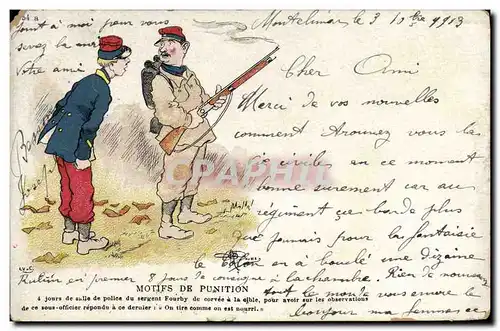 Montelimar le 3 1913
Cher Ami
Merci de vos nouvelles
comment trouvez vous la
civile en ce moment
bonne surement car au
régiment ça barde plus
que jamais pour la fantaisie
on a bouclé une dizaine
MOTIFS DE PUNITION
4 jours de salle de police du sergent Fourby de corvée à la cible, pour avoir sur les observations
de ce sous-officier répondu à ce dernier : « On tire comme on est nourri. »
en premier 8 jours de consigne à la chambre. Rien de nouveau
tout le monde vous envoie le
bonjour ma femme
part à moi pour vous
serrez la
Votre ami
CPRPHIL